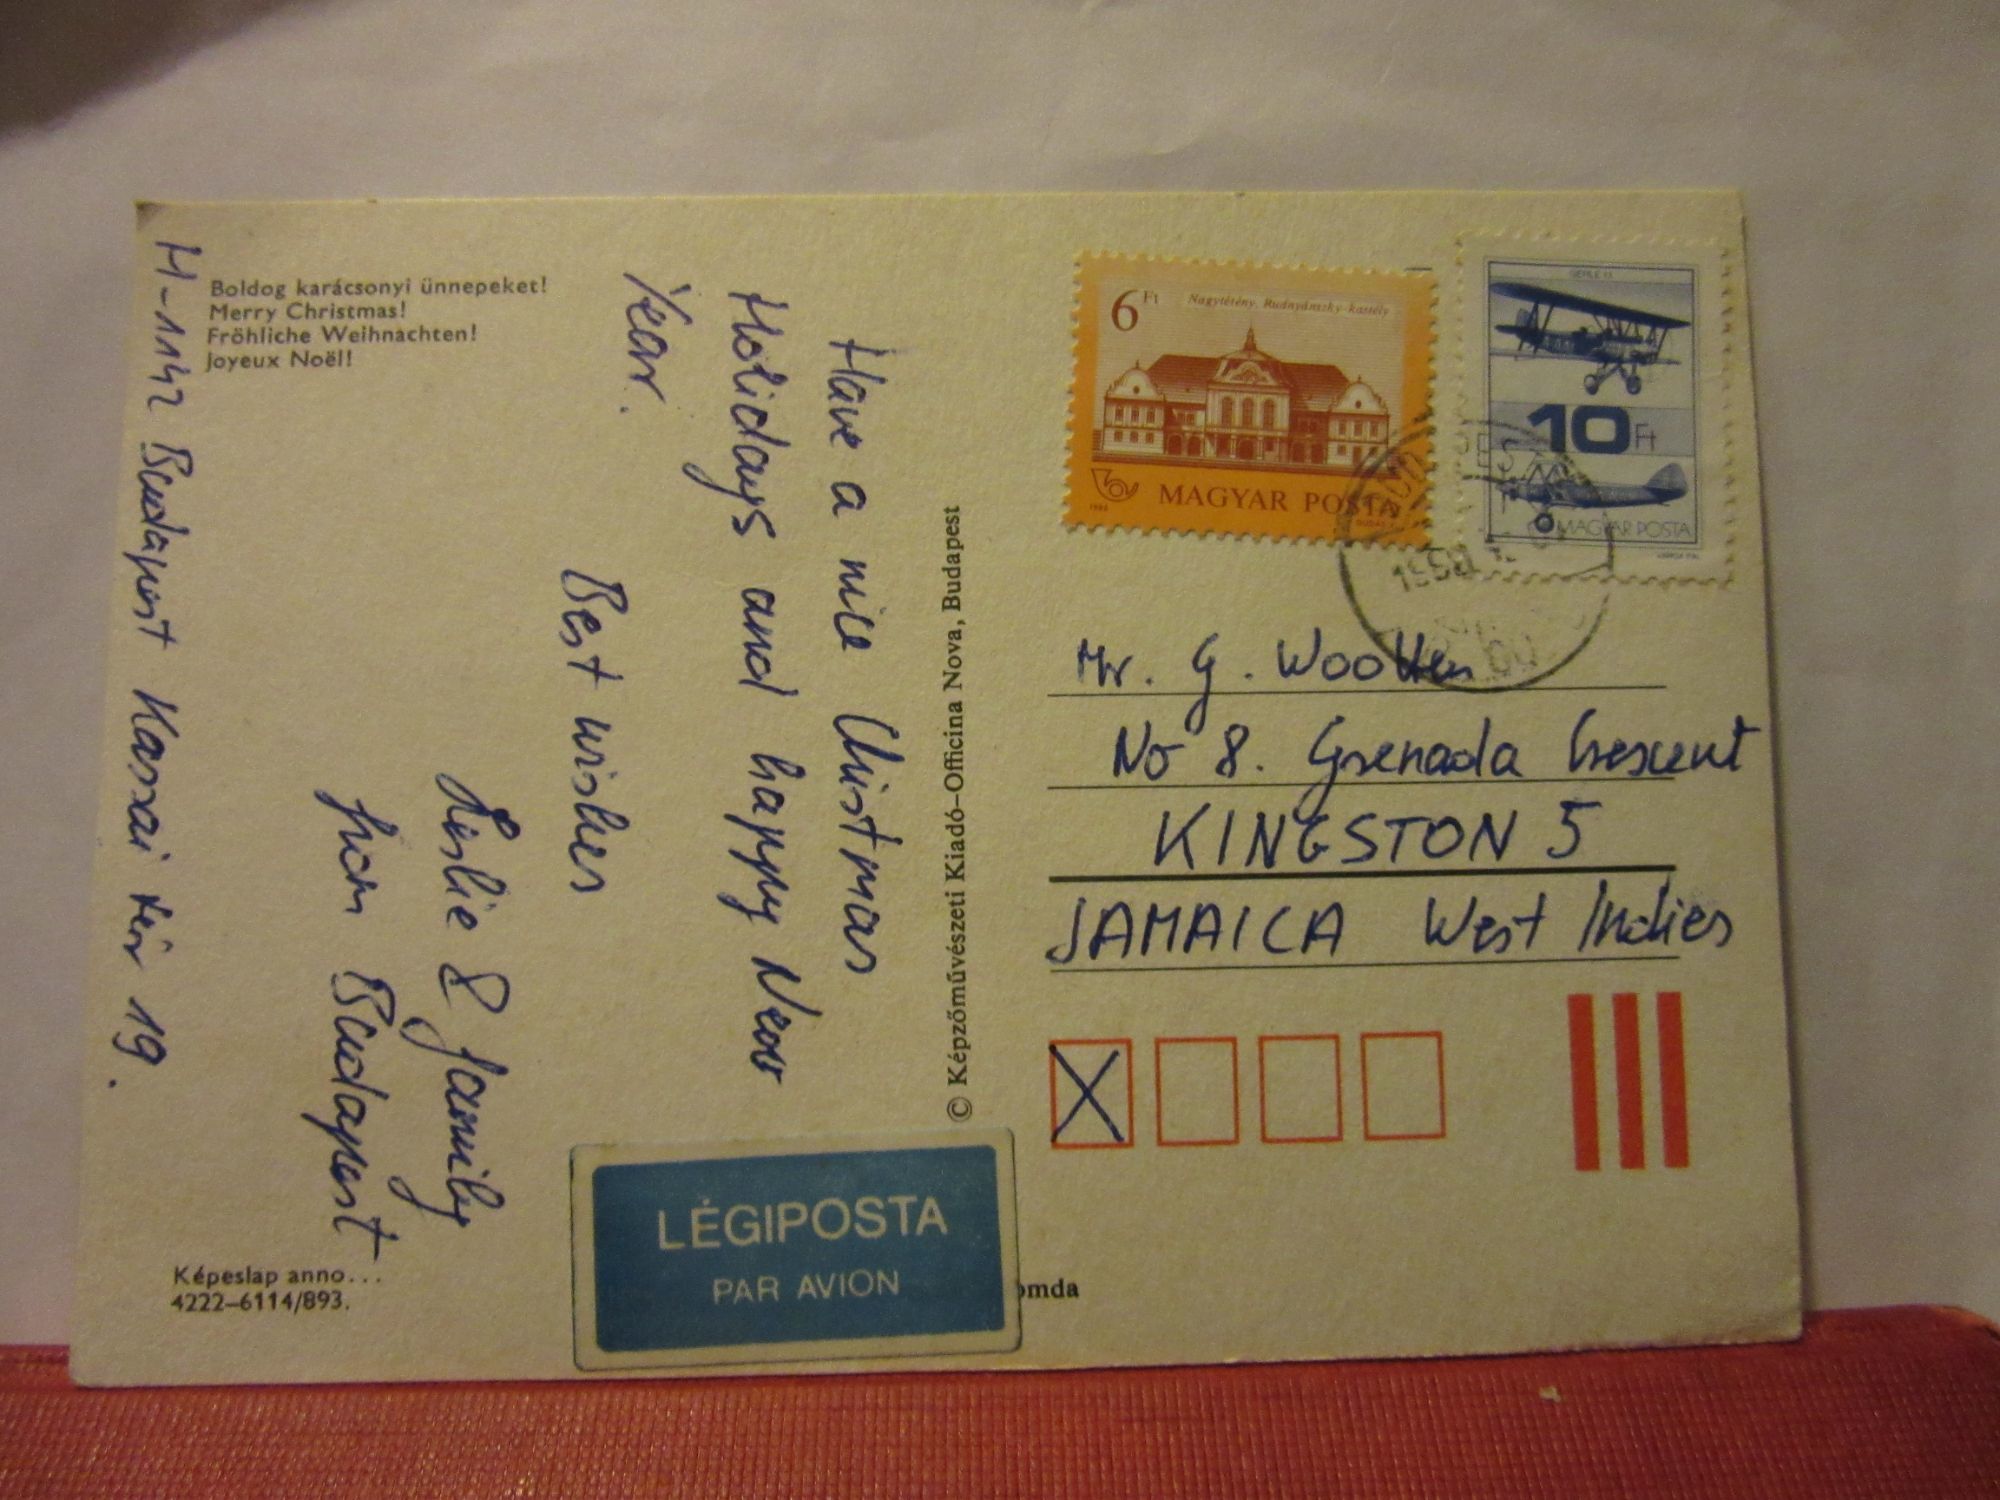 Boldog karácsonyi ünnepeket!
Merry Christmas!
Fröhliche Weihnachten!
Joyeux Noël!
Have a nice Christmas
Holidays and happy New
Year.
Best wishes
Leslie & family
from Budapest
H-1142 Budapest Kassai tér 19.
Képeslap anno...
4222-6114/893.
© Képzőművészeti Kiadó-Officina Nova, Budapest
LÉGIPOSTA
PAR AVION
omda
6 Ft
Nagytétény. Rudnyánszky-kastély
MAGYAR POSTA
1986
10 Ft
MAGYAR POSTA
Mr. G. Wootten
No 8. Grenada Crescent
KINGSTON 5
JAMAICA West Indies